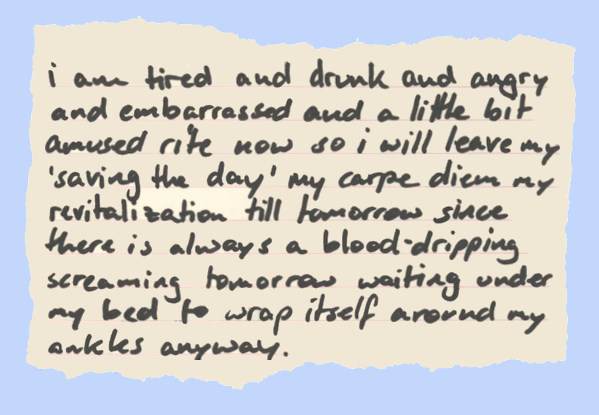 i am tired and drunk and angry
and embarrassed and a little bit
amused rite now so i will leave my
'saving the day' my carpe diem my
revitalization till tomorrow since
there is always a blood-dripping
screaming tomorrow waiting under
my bed to wrap itself around my
ankles anyway.